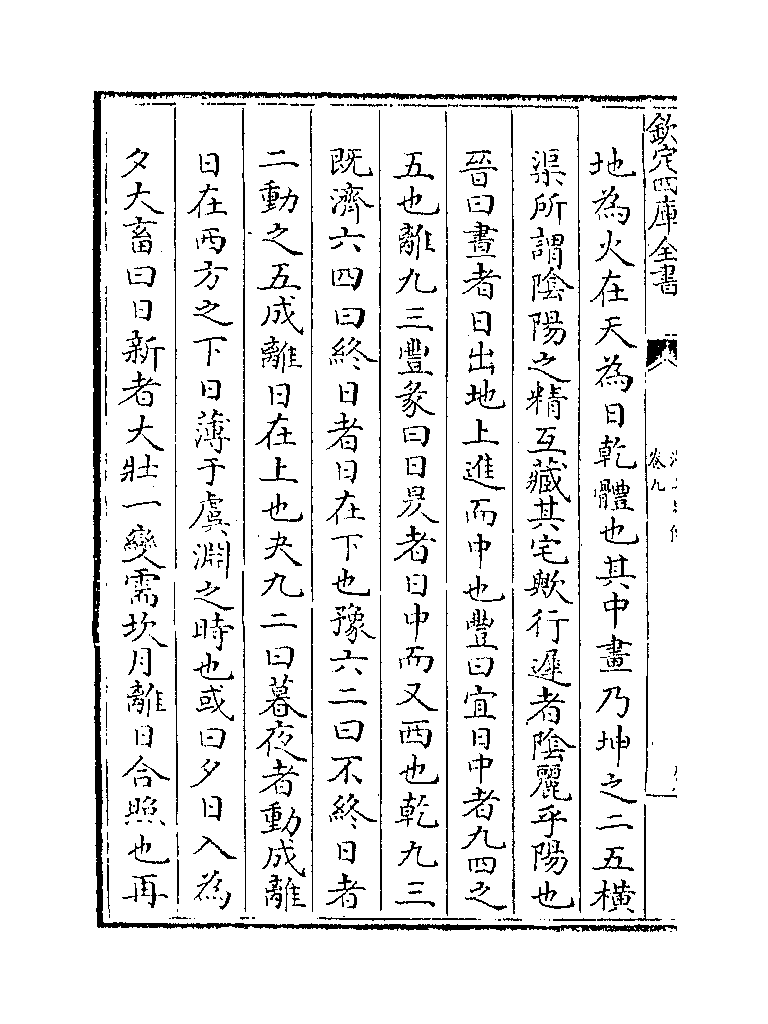 欽定四庫全書
卷九
地為火在天為日乾體也其中畫乃坤之二五橫
渠所謂陰陽之精互藏其宅歟行遲者陰麗乎陽也
晉曰晝者日出地上進而中也豐曰宜日中者九四之
五也離九三豐彖曰日昃者日中而又西也乾九三
既濟六四曰終日者日在下也豫六二曰不終日者
二動之五成離日在上也夬九二曰暮夜者動成離
日在西方之下日薄于虞淵之時也或曰夕日入為
夕大畜曰日新者大壯一變需坎月離日合照也再